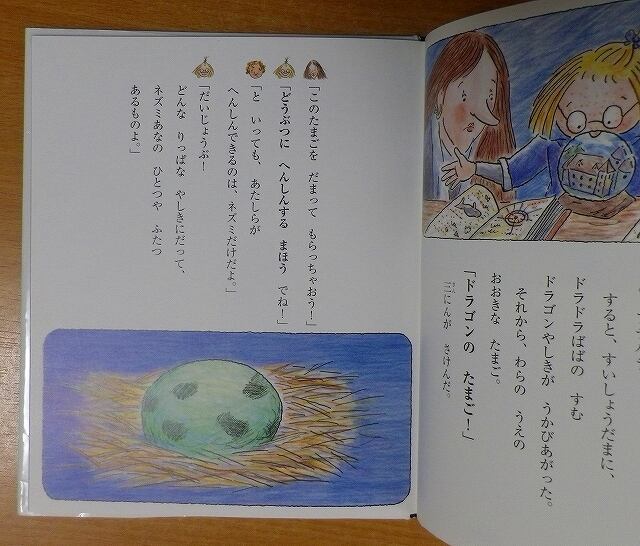 すると、すいしょうだまに、
ドラドラばばの すむ
ドラゴンやしきが うかびあがった。
それから、わらの うえの
おおきな たまご。
「ドラゴンの たまご！」
三にんが さけんだ。
「このたまごを だまって もらっちゃおう！」
「どうぶつに へんしんする まほう でね！」
「と いっても、あたしらが
へんしんできるのは、ネズミだけだよ。」
「だいじょうぶ！
どんな りっぱな やしきにだって、
ネズミあなの ひとつや ふたつ
あるものよ。」